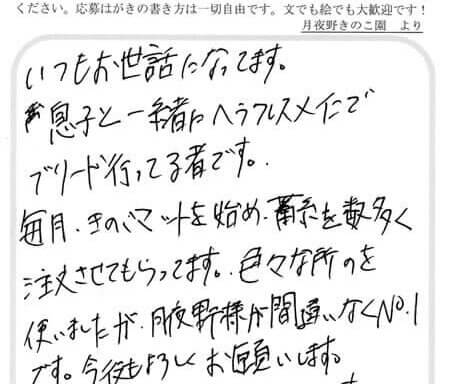 ください。応募はがきの書き方は一切自由です。文でも絵でも大歓迎です！
月夜野きのこ園　より
いつもお世話になってます。
息子と一緒にヘラクレスメインで
ブリード行ってる者です。
毎月、きのこマットを始め、菌糸を数多く
注文させてもらってます。色々な所のを
使いましたが、月夜野様が間違いなくNo.1
です。今後もよろしくお願いします。